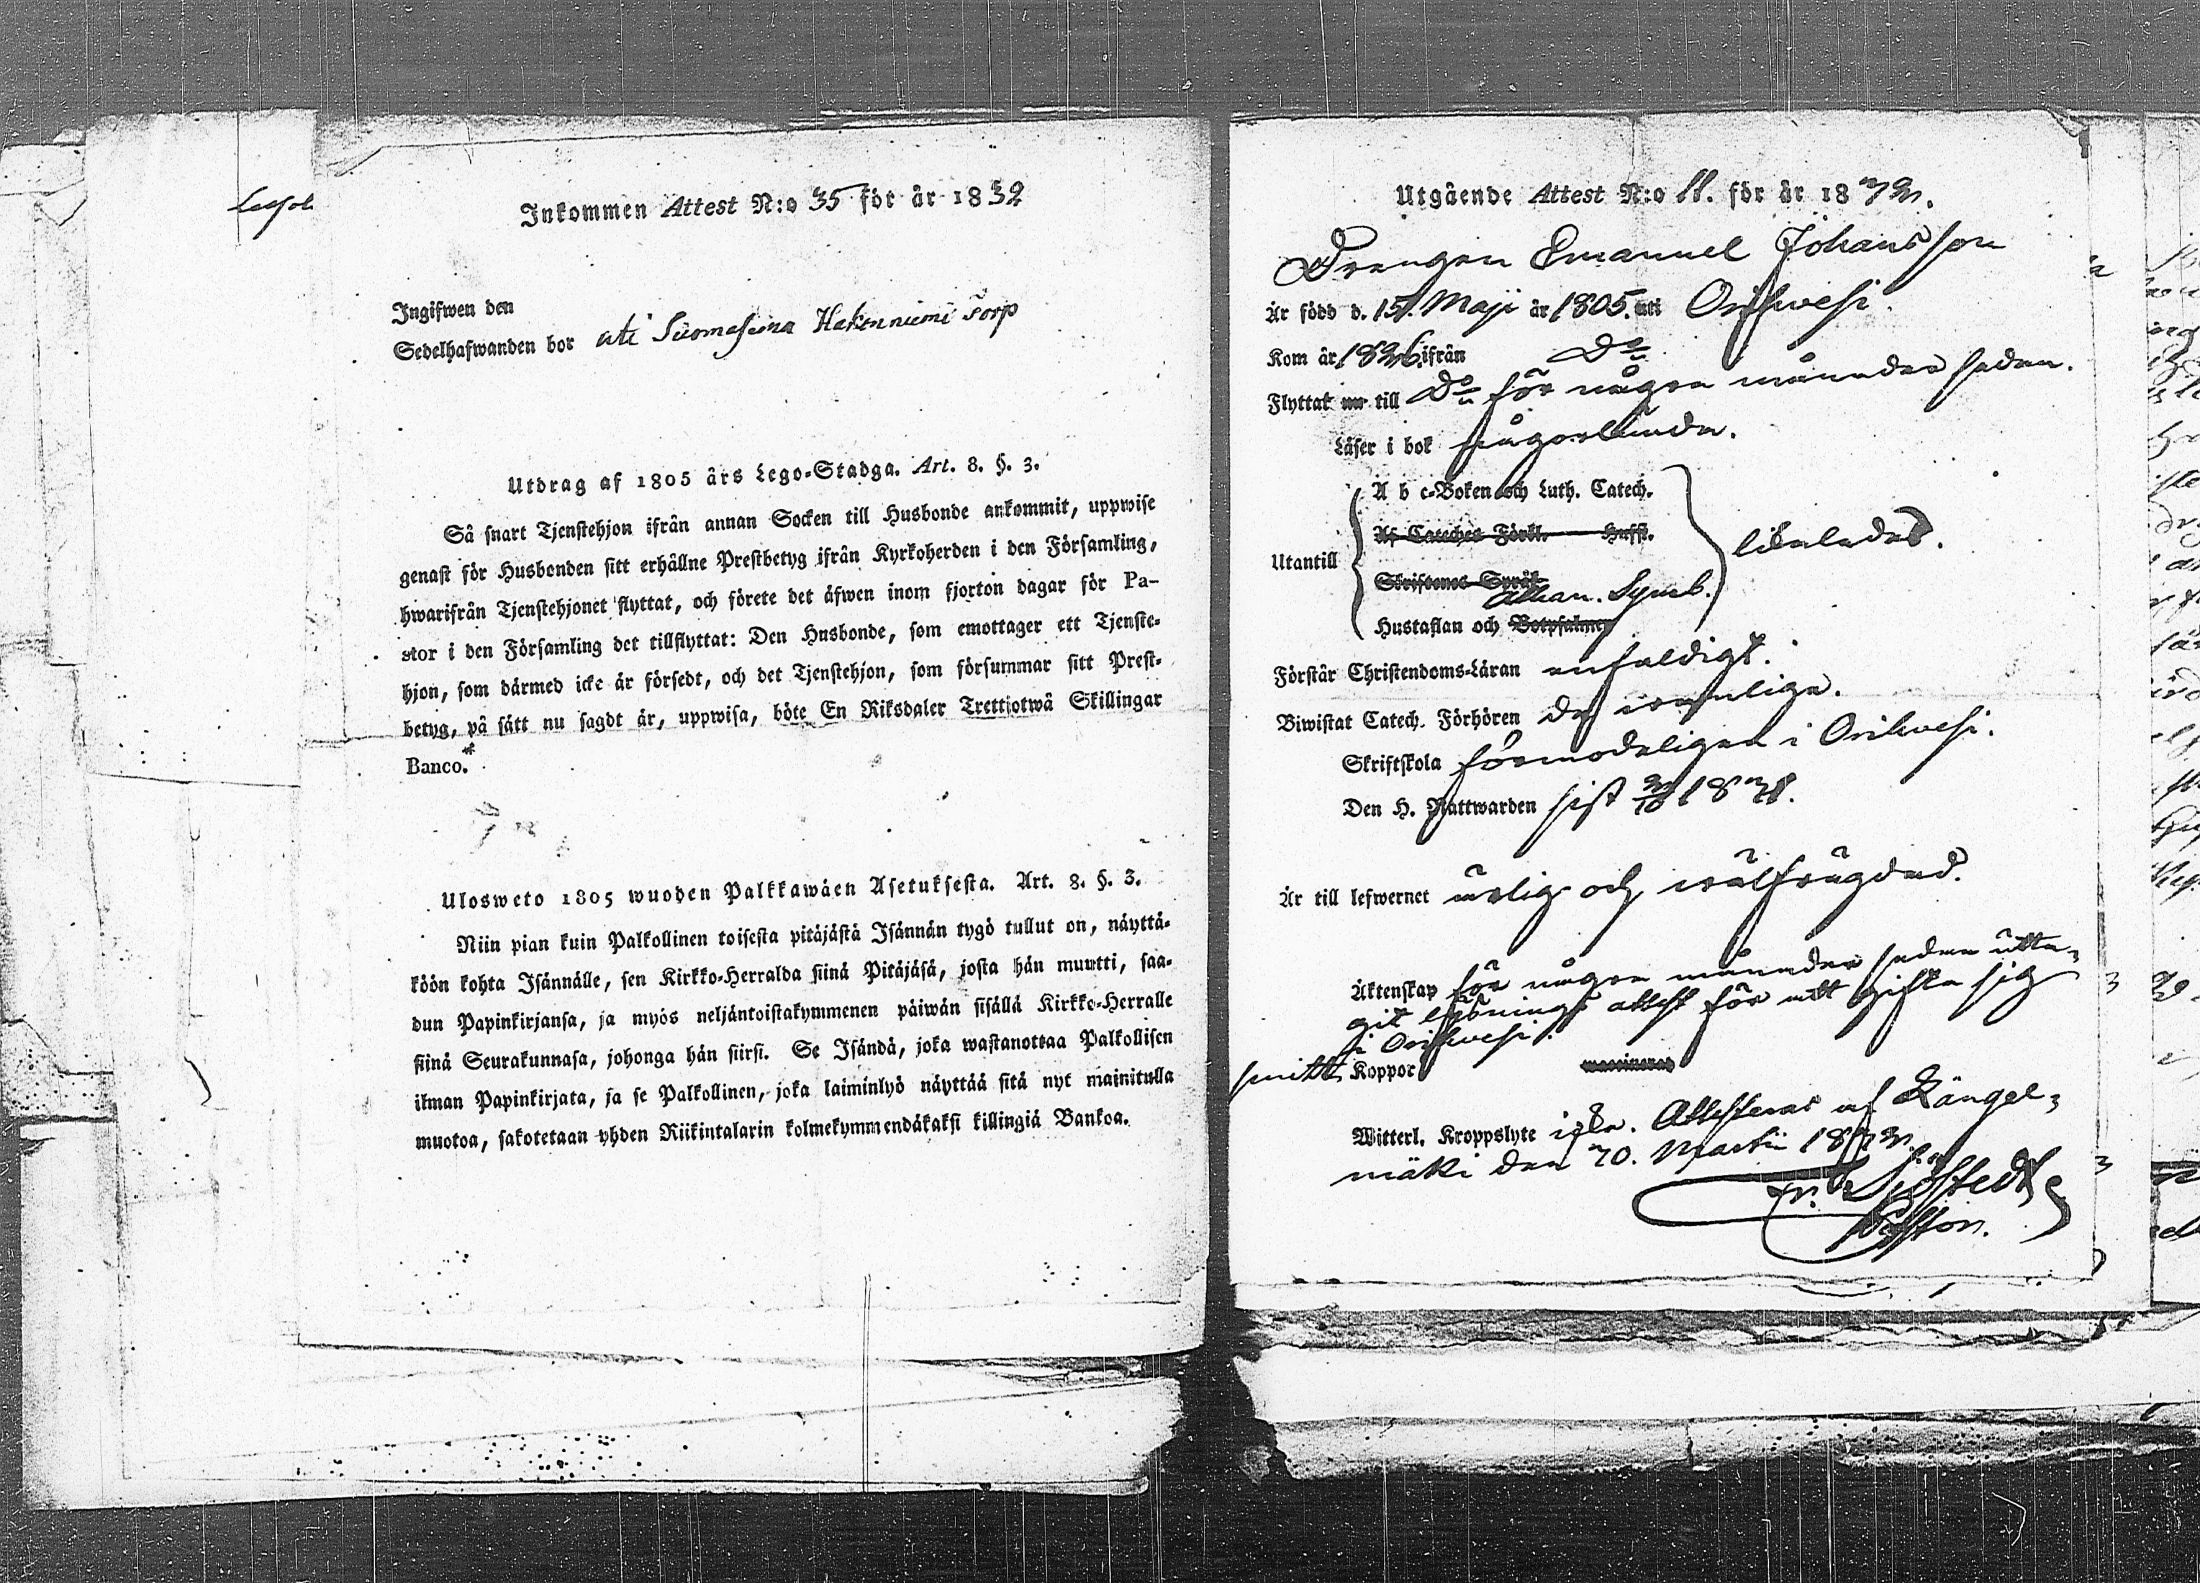 Inkommen Attest N:o 35 för år 1832
Ingifwen den
Sedelhafwanden bor uti Suomasema Hakenniemi Torp
Utdrag af 1805 års Lego-Stadga. Art. 8. §. 3.
Så snart Tjenstehjon ifrån annan Socken till Husbonde ankommit, uppwise
genast för Husbonden sitt erhållne Prestbetyg ifrån Kyrkoherden i den Församling,
hwarifrån Tjenstehjonet flyttat, och förete det äfwen inom fjorton dagar för Pa-
stor i den Församling det tillflyttat: Den Husbonde, som emottager ett Tjenste-
hjon, som därmed icke är försedt, och det Tjenstehjon, som försummar sitt Prest-
betyg, på sätt nu sagdt är, uppwisa, böte En Riksdaler Trettjotwå Skillingar
Banco.
Ulosweto 1805 wuoden Palkkawäen Asetuksesta. Art. 8. §. 3.
Niin pian kuin Palkollinen toisesta pitäjästä Isännän tygö tullut on, näyttä-
köön kohta Isännälle, sen Kirkko-Herralda siinä Pitäjäsä, josta hän muutti, saa-
dun Papinkirjansa, ja myös neljäntoistakymmenen päiwän sisällä Kirkko-Herralle
siinä Seurakunnasa, johonga hän siirsi. Se Isändä, joka wastanottaa Palkollisen
ilman Papinkirjata, ja se Palkollinen, joka laiminlyö näyttää sitä nyt mainitulla
muotoa, sakotetaan yhden Riikintalarin kolmekymmendäkaksi killingiä Bankoa.
Utgående Attest N:o 11. för år 1832.
Drengen Emanuel Johansson
Är född d. 15. Maji år 1805. uti Orihvesi.
Kom år 1826. ifrån Do
Flyttat nu till Do för några månader sedan.
Läser i bok någorlunda.
A b c-Boken och Luth. Catech.
Af Cateches Förkl. Husst.
Utantill likaledes.
Skriftenes Språk
Athan. Symb.
Hustaflan och Botpsalmer
Förstår Christendoms-Läran enfaldigt.
Biwistat Catech. Förhören de wanlige.
Skriftskola förmodeligen i Orihvesi.
Den H. Nattwarden sist 2/10 1831.
Är till lefwernet ärlig och wälfrägdad.
Äktenskap för några månader sedan utta-
git lysnings attest för att gifta sig
i Orihvesi.
haft Koppor vaccinerad
Witterl. Kroppslyte icke. Attesteras af Längel-
mäki den 30. Martii 1832.
Fr. Sjöstedt
Pastor.